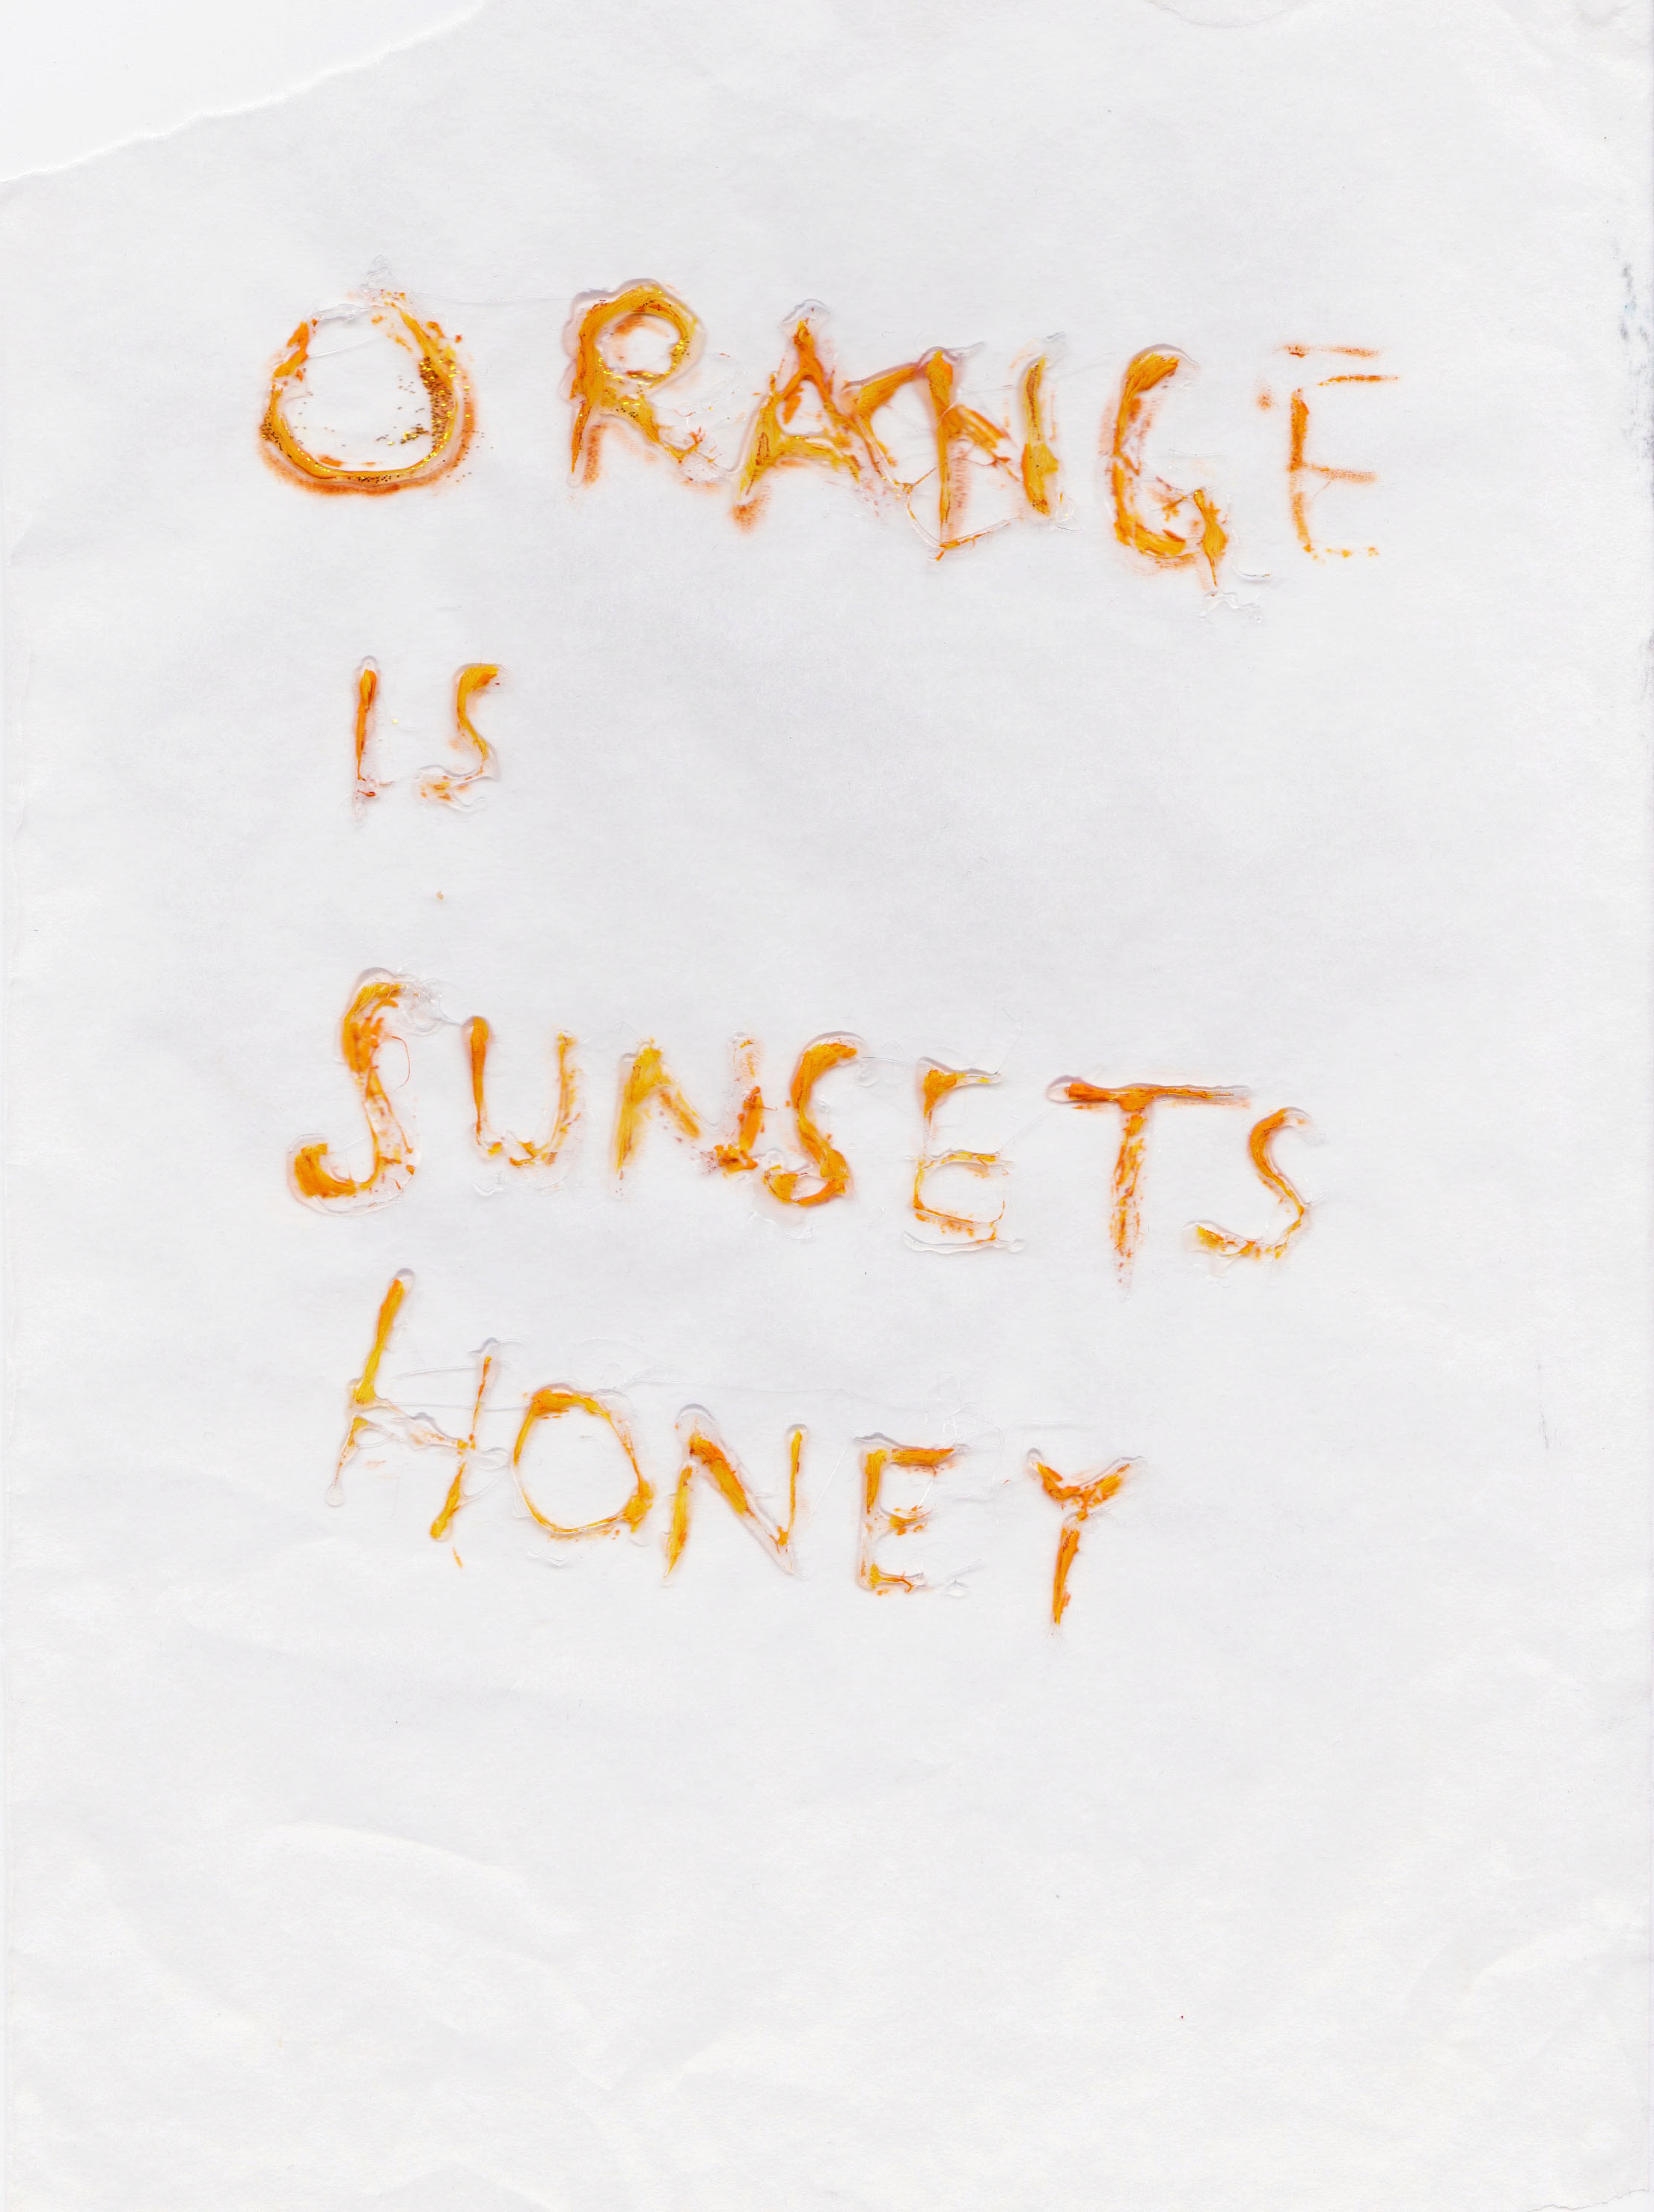 ORANGE
IS
SUNSETS
HONEY